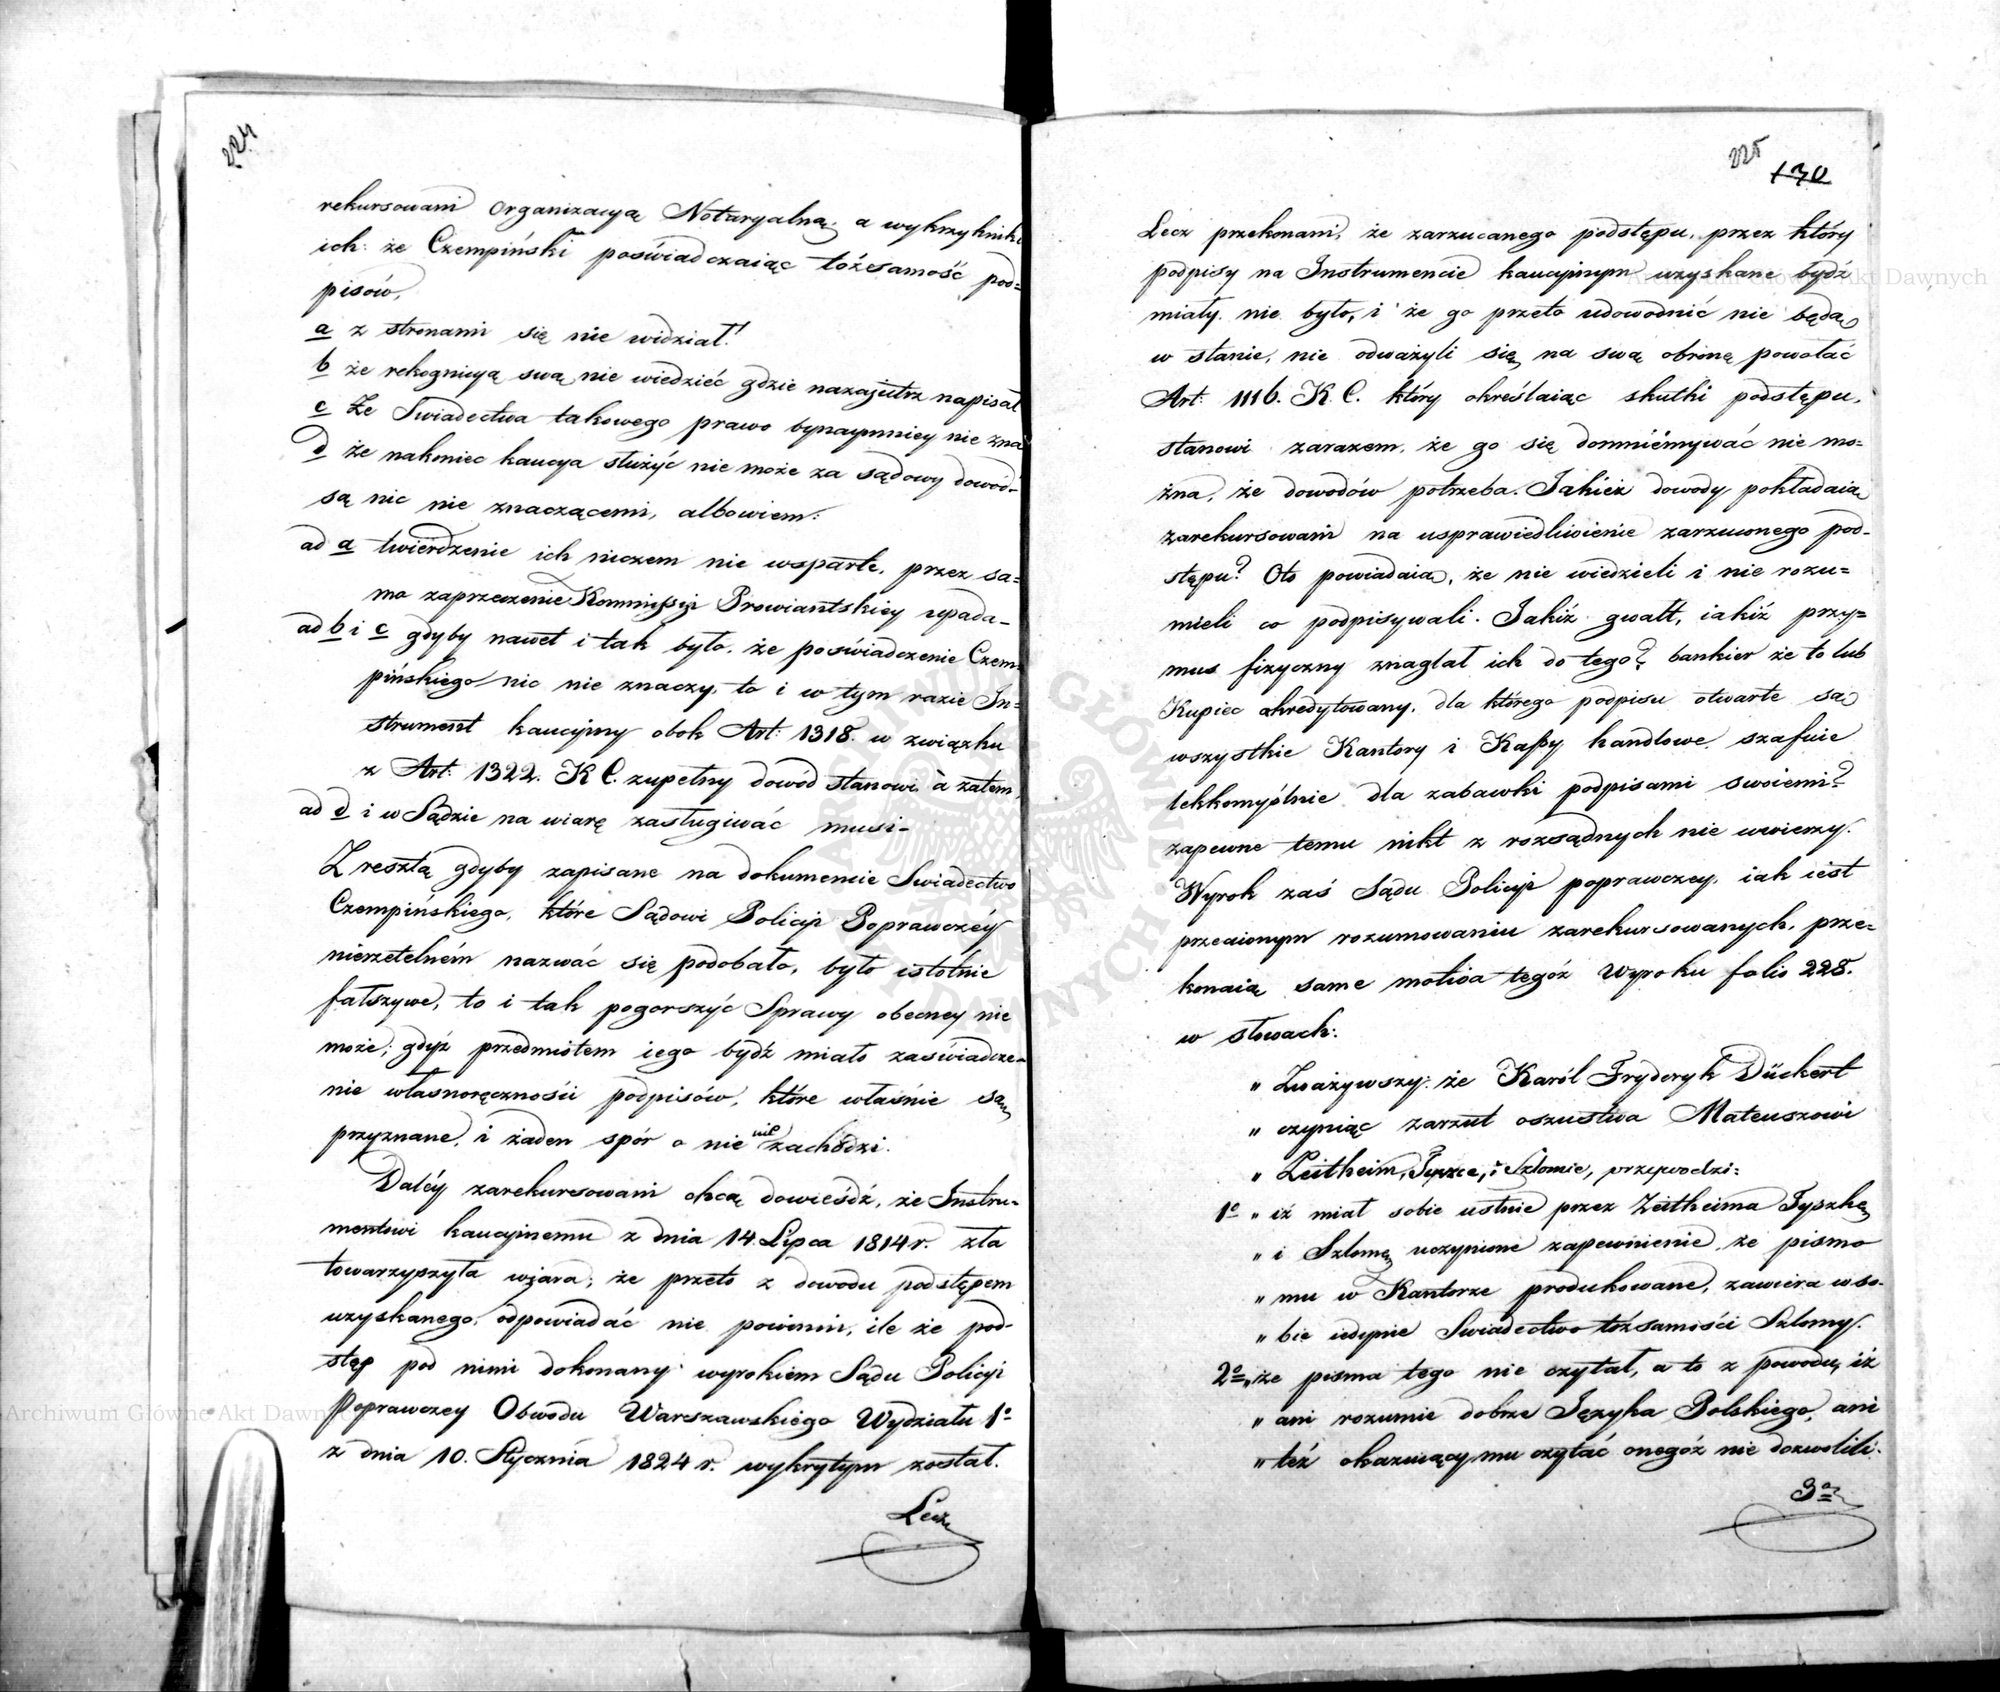 224
rekursowani Organizacyą Notaryalną, a wykrzykniki
ich: że Czempiński poświadczaiąc tożsamość pod=
pisów,
a z stronami się nie widział!
b że rekognicyą swą nie wiedzieć gdzie nazajutrz napisał
c Że Świadectwa takowego prawo bynaymniey nie zna
d że nakoniec kaucya służyć nie może za sądowy dowód-
są nic nie znaczącemi, albowiem:
ad a twierdzenie ich niczem nie wsparte, przez sa=
mo zaprzeczenie Kommissyi Prowiantskiey upada-
ad b i c gdyby nawet i tak było, że poświadczenie Czem=
pińskiego nic nie znaczy, to i w tym razie In=
strument kaucyiny obok Art: 1318. w związku
z Art: 1322. K C. zupełny dowód stanowi, à zatem,
ad d i w Sądzie na wiarę zasługiwać musi-
Zresztą gdyby zapisane na dokumencie Swiadectwo
Czempińskiego, które Sądowi Policyi Poprawczéy
nierzetelném nazwać się podobało, było istotnie
fałszywe, to i tak pogorszyć Sprawy obecney nie
może; gdyż przedmiotem iego bydź miało zaświadcze-
nie własnoręczności podpisów, które właśnie są
przyznane, i żaden spór o nie nie zachodzi.
Daléy zarekursowani chcą dowieśdź, że Instru-
mentowi kaucyinemu z dnia 14 Lipca 1814 r. zła
towarzyszyła wiara; że przeto z dowodu podstępem
uzyskanego, odpowiadać nie powinni, ile że pod-
stęp pod nimi dokonany wyrokiem Sądu Policyi
Poprawczey Obwodu Warszawskiego Wydziału 1º
z dnia 10. Stycznia 1824 r. wykrytym został.
Lecz
225
130
Lecz przekonani, że zarzucanego podstępu, przez który
podpisy na Instrumencie kaucyinym uzyskane bydź
miały, nie było, i że go przeto udowodnić nie będą
w stanie, nie odważyli się na swą obronę powołać
Art: 1116. K. C. który określaiąc skutki podstępu,
stanowi zarazem, że go się domniémywać nie mo=
żna, że dowodów potrzeba. Jakież dowody pokładaią
zarekursowani na usprawiedliwienie zarzuconego pod-
stępu? Oto powiadaią, że nie wiedzieli i nie rozu=
mieli co podpisywali. Jakiż gwałt, iakiż przy=
mus fizyczny znaglał ich do tego? bankier że to lub
Kupiec akredytowany, dla którego podpisu otwarte są
wszystkie Kantory i Kassy handlowe, szafuie
lekkomyślnie dla zabawki podpisami swoiemi?
zapewne temu nikt z rozsądnych nie uwierzy.
Wyrok zaś Sądu Policyi poprawczey, iak iest
przeciwnym rozumowaniu zarekursowanych, prze=
konaią same motiva tegóż Wyroku folio 228.
w słowach:
„ Zważywszy: że Karól Fryderyk Dückert
„ czyniąc zarzut oszustwa Mateuszowi
„ Zeitheim, Tyszce, i Szlomie, przywodzi:
1º „ iż miał sobie ustnie przez Zeitheima Tyszkę
„ i Szlomę uczynione zapewnienie, że pismo
„ mu w Kantorze produkowane, zawiera w so-
„ bie iedynie Swiadectwo tożsamości Szlomy.
2º „ że pisma tego nie czytał, a to z powodu, iż
„ ani rozumie dobrze Języka Polskiego, ani
„ też okazuiący mu czytać onegóż nie dozwolili.
3º
Archiwum Główne Akt Dawnych
Archiwum Główne Akt Dawnych